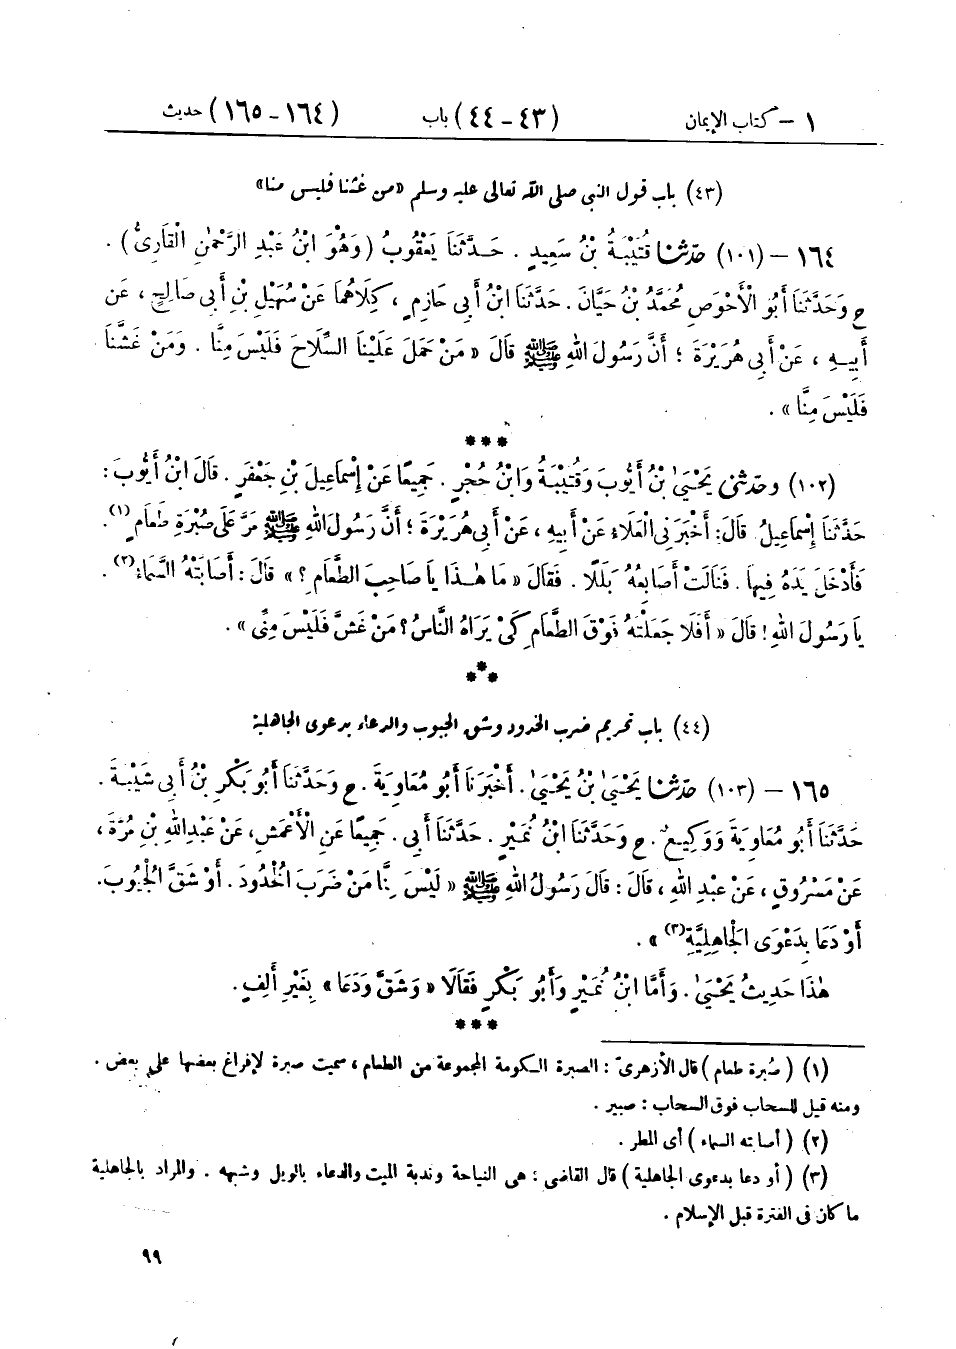 ١ – كتاب الإيمان (٤٣ – ٤٤) باب (١٦٤ – ١٦٥) حديث
(٤٣) باب قول النبى صلى الله تعالى عليه وسلم «من غشنا فليس منا»
١٦٤ – (١٠١) حدّثنا قُتَيْبَةُ بْنُ سَعِيدٍ . حَدَّثَنَا يَعْقُوبُ (وَهُوَ ابْنُ عَبْدِ الرَّحْمٰنِ الْقَارِىُّ) .
ح وَحَدَّثَنَا أَبُو الْأَحْوَصِ مُحَمَّدُ بْنُ حَيَّانَ . حَدَّثَنَا ابْنُ أَبِى حَازِمٍ ، كِلَاهُمَا عَنْ سُهَيْلِ بْنِ أَبِى صَالِحٍ ، عَنْ
أَبِيهِ ، عَنْ أَبِى هُرَيْرَةَ ؛ أَنَّ رَسُولَ اللهِ ﷺ قَالَ « مَنْ حَمَلَ عَلَيْنَا السِّلَاحَ فَلَيْسَ مِنَّا . وَمَنْ غَشَّنَا
فَلَيْسَ مِنَّا » .
***
(١٠٢) وحدّثنى يَحْيَىٰ بْنُ أَيُّوبَ وَقُتَيْبَةُ وَابْنُ حُجْرٍ . جَمِيعًا عَنْ إِسْمَاعِيلَ بْنِ جَعْفَرٍ . قَالَ ابْنُ أَيُّوبَ :
حَدَّثَنَا إِسْمَاعِيلُ قَالَ : أَخْبَرَنِى الْعَلَاءُ عَنْ أَبِيهِ ، عَنْ أَبِى هُرَيْرَةَ ؛ أَنَّ رَسُولَ اللهِ ﷺ مَرَّ عَلَى صُبْرَةِ طَعَامٍ (١) .
فَأَدْخَلَ يَدَهُ فِيهَا . فَنَالَتْ أَصَابِعُهُ بَلَلًا . فَقَالَ « مَا هٰذَا يَا صَاحِبَ الطَّعَامِ ؟ » قَالَ : أَصَابَتْهُ السَّمَاءُ (٢) .
يَا رَسُولَ اللهِ ! قَالَ « أَفَلَا جَعَلْتَهُ فَوْقَ الطَّعَامِ كَىْ يَرَاهُ النَّاسُ ؟ مَنْ غَشَّ فَلَيْسَ مِنِّى » .
***
(٤٤) باب تحريم ضرب الخدود وشق الجيوب والدعاء بدعوى الجاهلية
١٦٥ – (١٠٣) حدّثنا يَحْيَىٰ بْنُ يَحْيَىٰ . أَخْبَرَنَا أَبُو مُعَاوِيَةَ . ح وَحَدَّثَنَا أَبُو بَكْرِ بْنُ أَبِى شَيْبَةَ .
حَدَّثَنَا أَبُو مُعَاوِيَةَ وَوَكِيعٌ . ح وَحَدَّثَنَا ابْنُ نُمَيْرٍ . حَدَّثَنَا أَبِى . جَمِيعًا عَنِ الْأَعْمَشِ ، عَنْ عَبْدِ اللهِ بْنِ مُرَّةَ ،
عَنْ مَسْرُوقٍ ، عَنْ عَبْدِ اللهِ ، قَالَ : قَالَ رَسُولُ اللهِ ﷺ « لَيْسَ مِنَّا مَنْ ضَرَبَ الْخُدُودَ . أَوْ شَقَّ الْجُيُوبَ .
أَوْ دَعَا بِدَعْوَى الْجَاهِلِيَّةِ (٣) » .
هٰذَا حَدِيثُ يَحْيَىٰ . وَأَمَّا ابْنُ نُمَيْرٍ وَأَبُو بَكْرٍ فَقَالَا « وَشَقَّ وَدَعَا » بِغَيْرِ أَلِفٍ .
***
(١) ( صُبرة طعام ) قال الأزهرىّ : الصبرة الكومة المجموعة من الطعام ، سميت صبرة لإفراغ بعضها على بعض .
ومنه قيل للسحاب فوق السحاب : صبير .
(٢) ( أصابته السماء ) أى المطر .
(٣) ( أو دعا بدعوى الجاهلية ) قال القاضى : هى النياحة وندبة الميت والدعاء بالويل وشبهه . والمراد بالجاهلية
ما كان فى الفترة قبل الإسلام .
٩٩